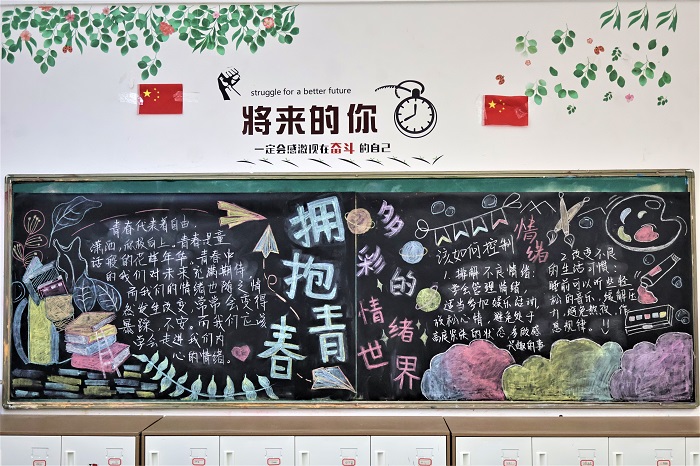 struggle for a better future
將来的你
一定会感激现在奋斗的自己
青春代表着自由,
潇洒,欣欣向上,青春是童
话般的花样年华,青春中
的我们对未来充满期待,
而我们的情绪也随之情
暴躁、不安。而我们应该
学会走进我们内
心的情绪。
拥抱青春
多彩的
情绪世界
该如何控制
情绪
1. 排解不良情绪:
学会管理情绪,
适当参加娱乐活动
放松心情,避免处于
2 改变不良
的生活习惯:
睡前可以听些轻
松的音乐,缓解压
力,避免熬夜,作
息规律。!!